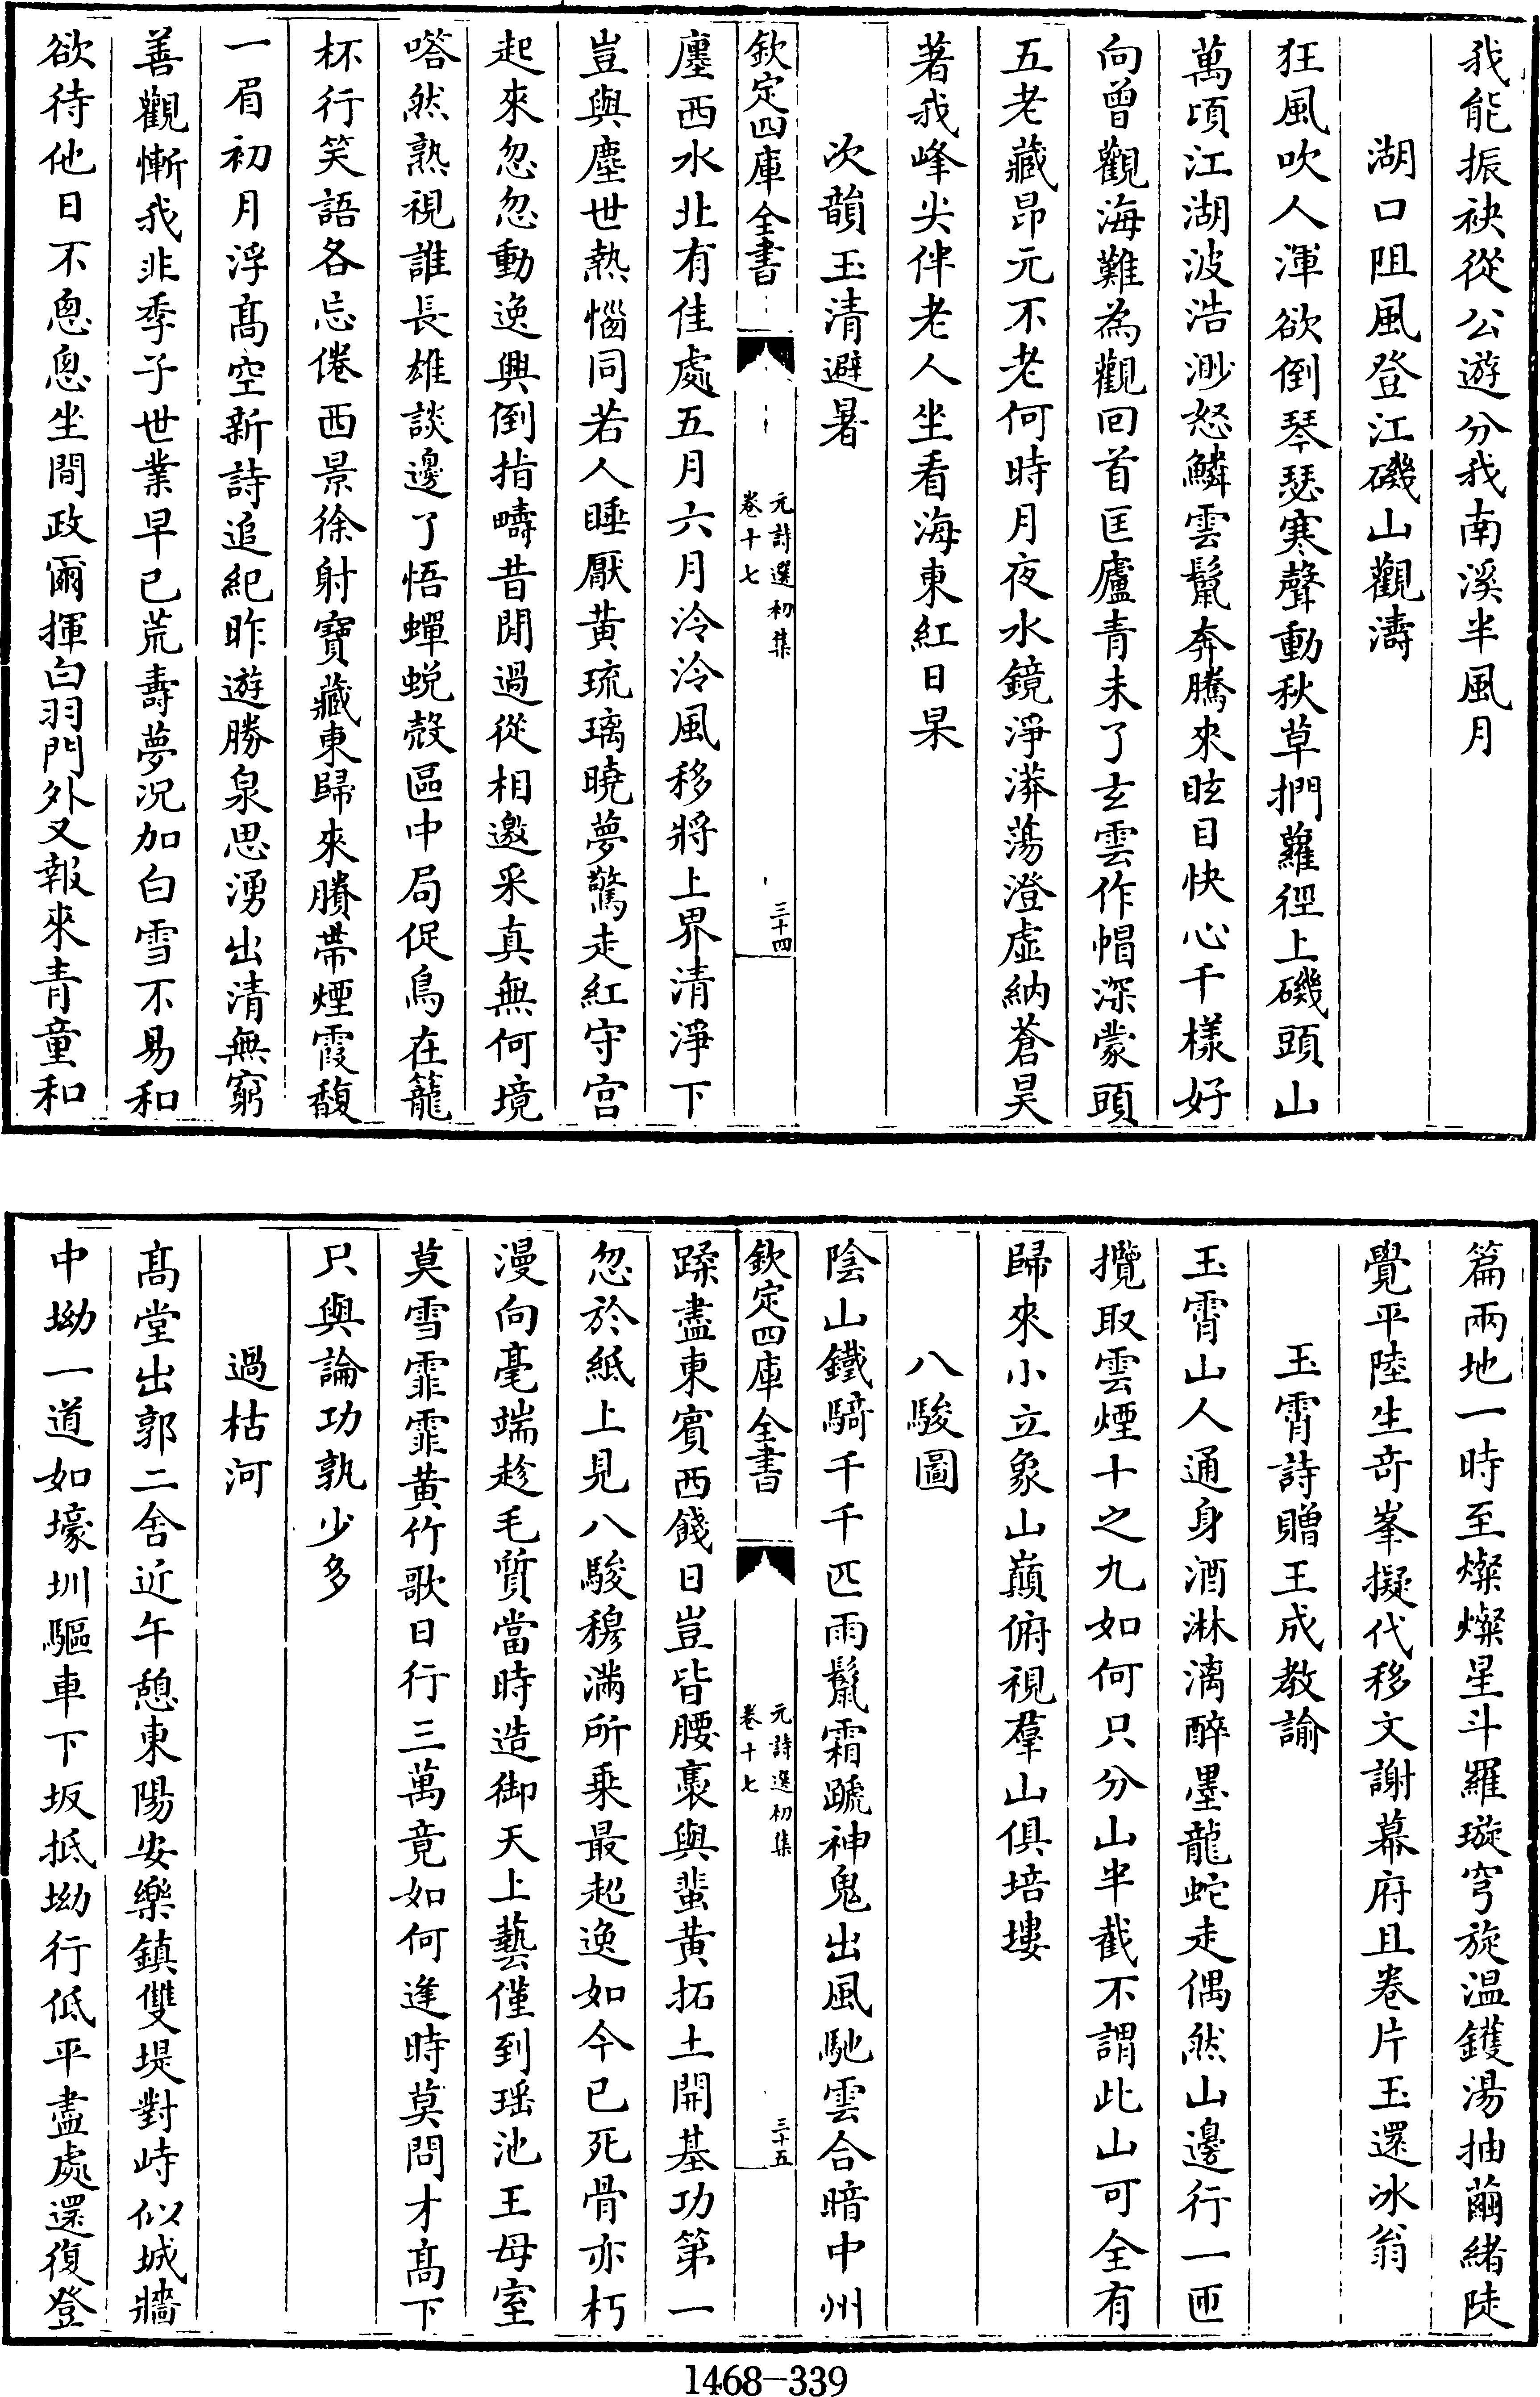 我能振袂從公遊分我南溪半風月
湖口阻風登江磯山觀濤
狂風吹人渾欲倒琴瑟寒聲動秋草捫蘿徑上磯頭山
萬頃江湖波浩渺怒鱗雲鬛奔騰來眩目快心千樣好
向曾觀海難為觀回首匡廬青未了玄雲作帽深蒙頭
五老藏昂元不老何時月夜水鏡淨漭蕩澄虛納蒼昊
著我峰尖伴老人坐看海東紅日杲
次韻玉清避暑
欽定四庫全書
元詩選初集
卷十七
三十四
廛西水北有佳處五月六月泠泠風移將上界清淨下
豈與塵世熱惱同若人睡厭黃琉璃曉夢驚走紅守宫
起來忽忽動逸興倒指疇昔閒過從相邀采真無何境
嗒然熟視誰長雄談邊了悟蟬蛻殼區中局促鳥在籠
杯行笑語各忘倦西景徐射寶藏東歸來賸帶煙霞馥
一眉初月浮髙空新詩追紀昨遊勝泉思湧出清無窮
善觀慚我非季子世業早已荒壽夢况加白雪不易和
欲待他日不悤悤坐間政爾揮白羽門外又報來青童和
篇兩地一時至燦燦星斗羅璇穹旋温鑊湯抽繭緒陡
覺平陸生奇峯擬代移文謝幕府且卷片玉還冰翁
玉霄詩贈王成教諭
玉霄山人通身酒淋漓醉墨龍蛇走偶然山邊行一匝
攬取雲煙十之九如何只分山半截不謂此山可全有
歸來小立象山巔俯視羣山俱培塿
八駿圖
陰山鐵騎千千匹雨鬛霜蹏神鬼出風馳雲合暗中州
欽定四庫全書
元詩選初集
卷十七
三十五
蹂盡東賓西餞日豈皆腰褭與蜚黃拓土開基功第一
忽於紙上見八駿穆滿所乘最超逸如今已死骨亦朽
漫向毫端趁毛質當時造御天上藝僅到瑶池王母室
莫雪霏霏黃竹歌日行三萬竟如何逢時莫問才髙下
只與論功孰少多
過枯河
髙堂出郭二舍近午憩東陽安樂鎮雙堤對峙似城牆
中坳一道如壕圳驅車下坂抵坳行低平盡處還復登
1468-339